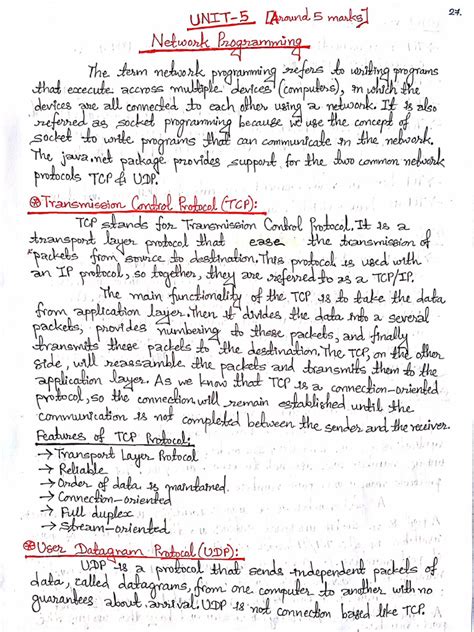 27.
UNIT-5 [Around 5 marks]
Network Programming
The term network programming refers to writing programs
that execute accross multiple devices (computers), in which the
devices are all connected to each other using a network. It is also
referred as socket programming because we use the concept of
socket to write programs that can communicate in the network.
The java.net package provides support for the two common network
protocols TCP & UDP.
⊛Transmission Control Protocol (TCP):
TCP stands for Transmission Control Protocol. It is a
transport layer protocol that ease the transmission of
packets from source to destination. This protocol is used with
an IP protocol, so together, they are referred to as a TCP/IP.
The main functionality of the TCP is to take the data
from application layer. Then it divides the data into a several
packets, provides numbering to these packets, and finally
transmits these packets to the destination. The TCP, on the other
side, will reassamble the packets and transmits them to the
application layer. As we know that TCP is a connection-oriented
protocol, so the connection will remain established until the
communication is not completed between the sender and the receiver.
Features of TCP Protocol:
→ Transport Layer Protocol
→ Reliable
→ Order of data is maintained.
→ Connection-oriented
→ Full duplex
→ Stream-oriented
⊛User Datagram Protocol (UDP):
UDP is a protocol that sends independent packets of
data, called datagrams, from one computer to another with no
guarantees about arrival. UDP is not connection based like TCP.